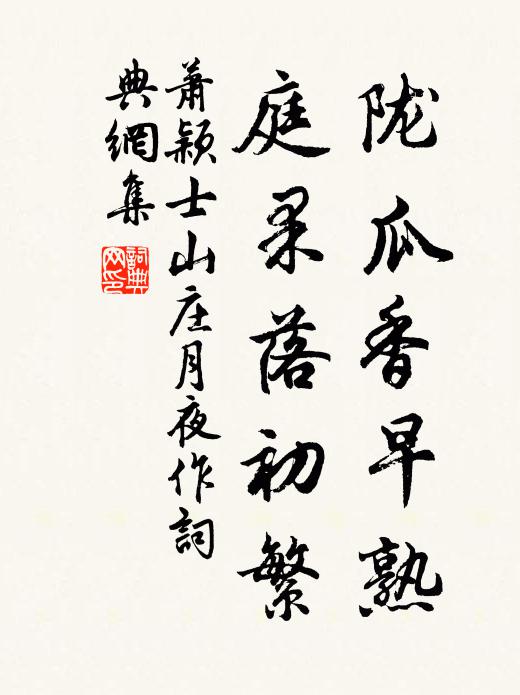 陇瓜香早熟
庭果落初繁
萧颖士山庄月夜作詞
典網集
詞典网印